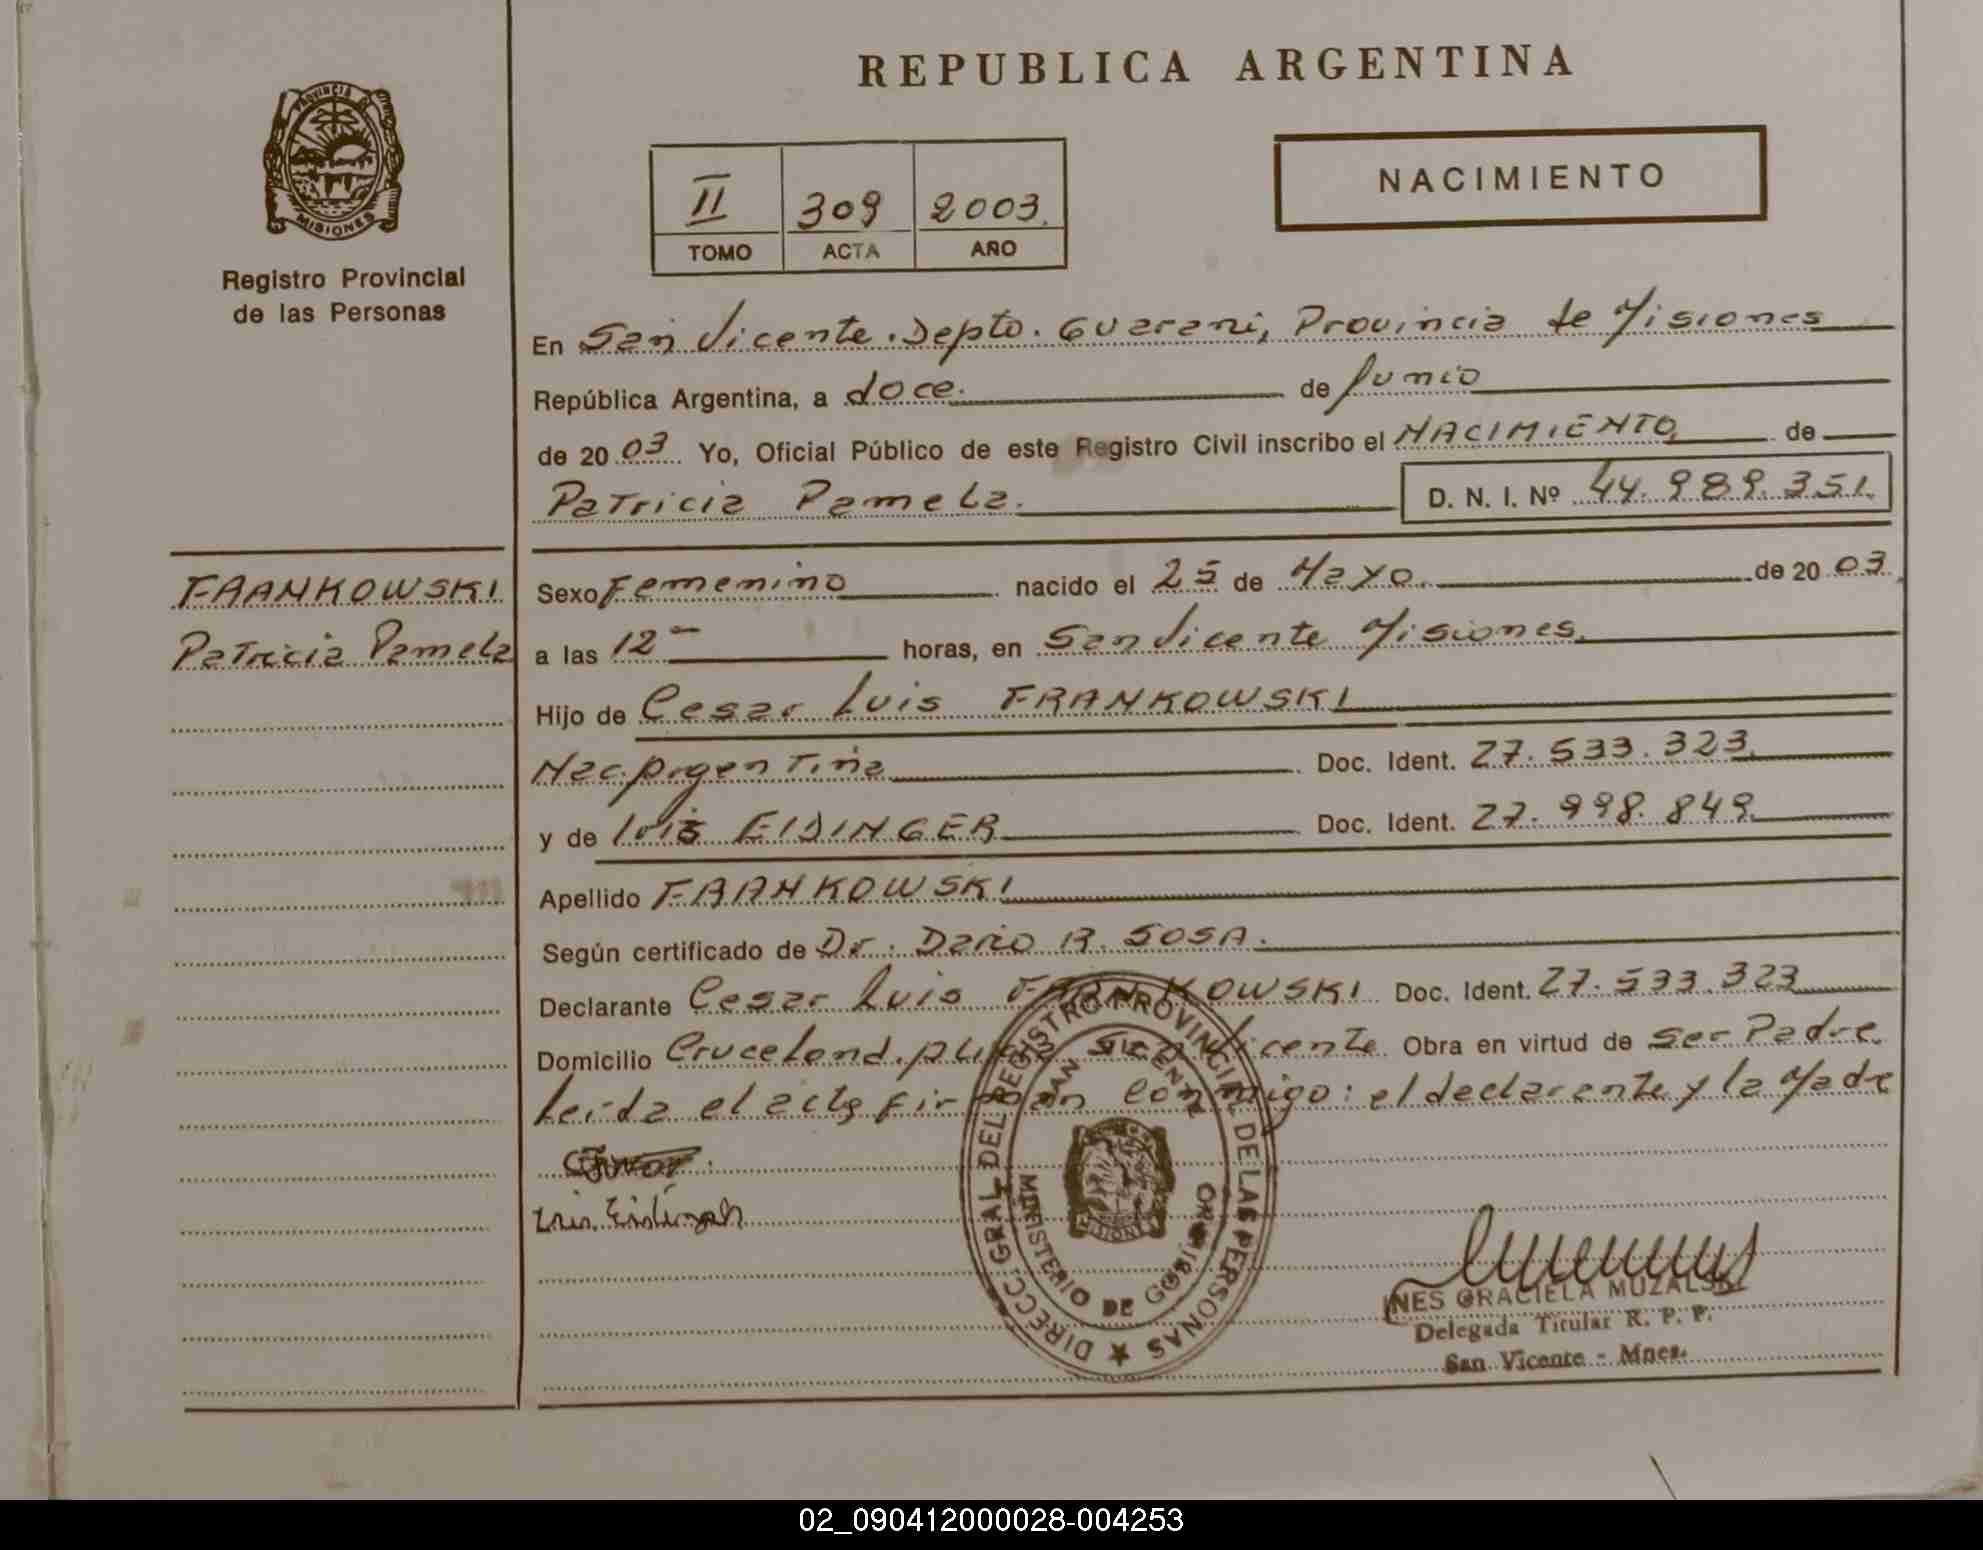 REPUBLICA ARGENTINA
PROVINCIA DE
MISIONES
Registro Provincial
de las Personas
II 309 2003.
TOMO ACTA AÑO
NACIMIENTO
En San Vicente. Depto. Guarani, Provincia de Misiones
República Argentina, a doce. de Junio
de 2003 Yo, Oficial Público de este Registro Civil inscribo el NACIMIENTO de
Patricia Pamela. D. N. I. Nº 44.989.351.
FRANKOWSKI
Patricia Pamela
Sexo Femenino nacido el 25 de Mayo. de 2003.
a las 12 horas, en San Vicente Misiones.
Hijo de Cesar Luis FRANKOWSKI
Nac. Argentina Doc. Ident. 27.533.323.
y de EIDINGER Doc. Ident. 27.998.849.
Apellido FRANKOWSKI
Según certificado de Dr. Dario R. SOSA.
Declarante Cesar Luis FRANKOWSKI Doc. Ident. 27.533.323
Domicilio San Vicente. Obra en virtud de ser Padre.
Leida el acta firman conmigo: el declarante y la Madre
DIRECC. GRAL. DEL REGISTRO PROVINCIAL DE LAS PERSONAS
SAN VICENTE
MINISTERIO DE GOBIERNO
MISIONES
INES GRACIELA MUZALSKI
Delegada Titular R. P. P.
San Vicente - Mnes.
02_090412000028-004253